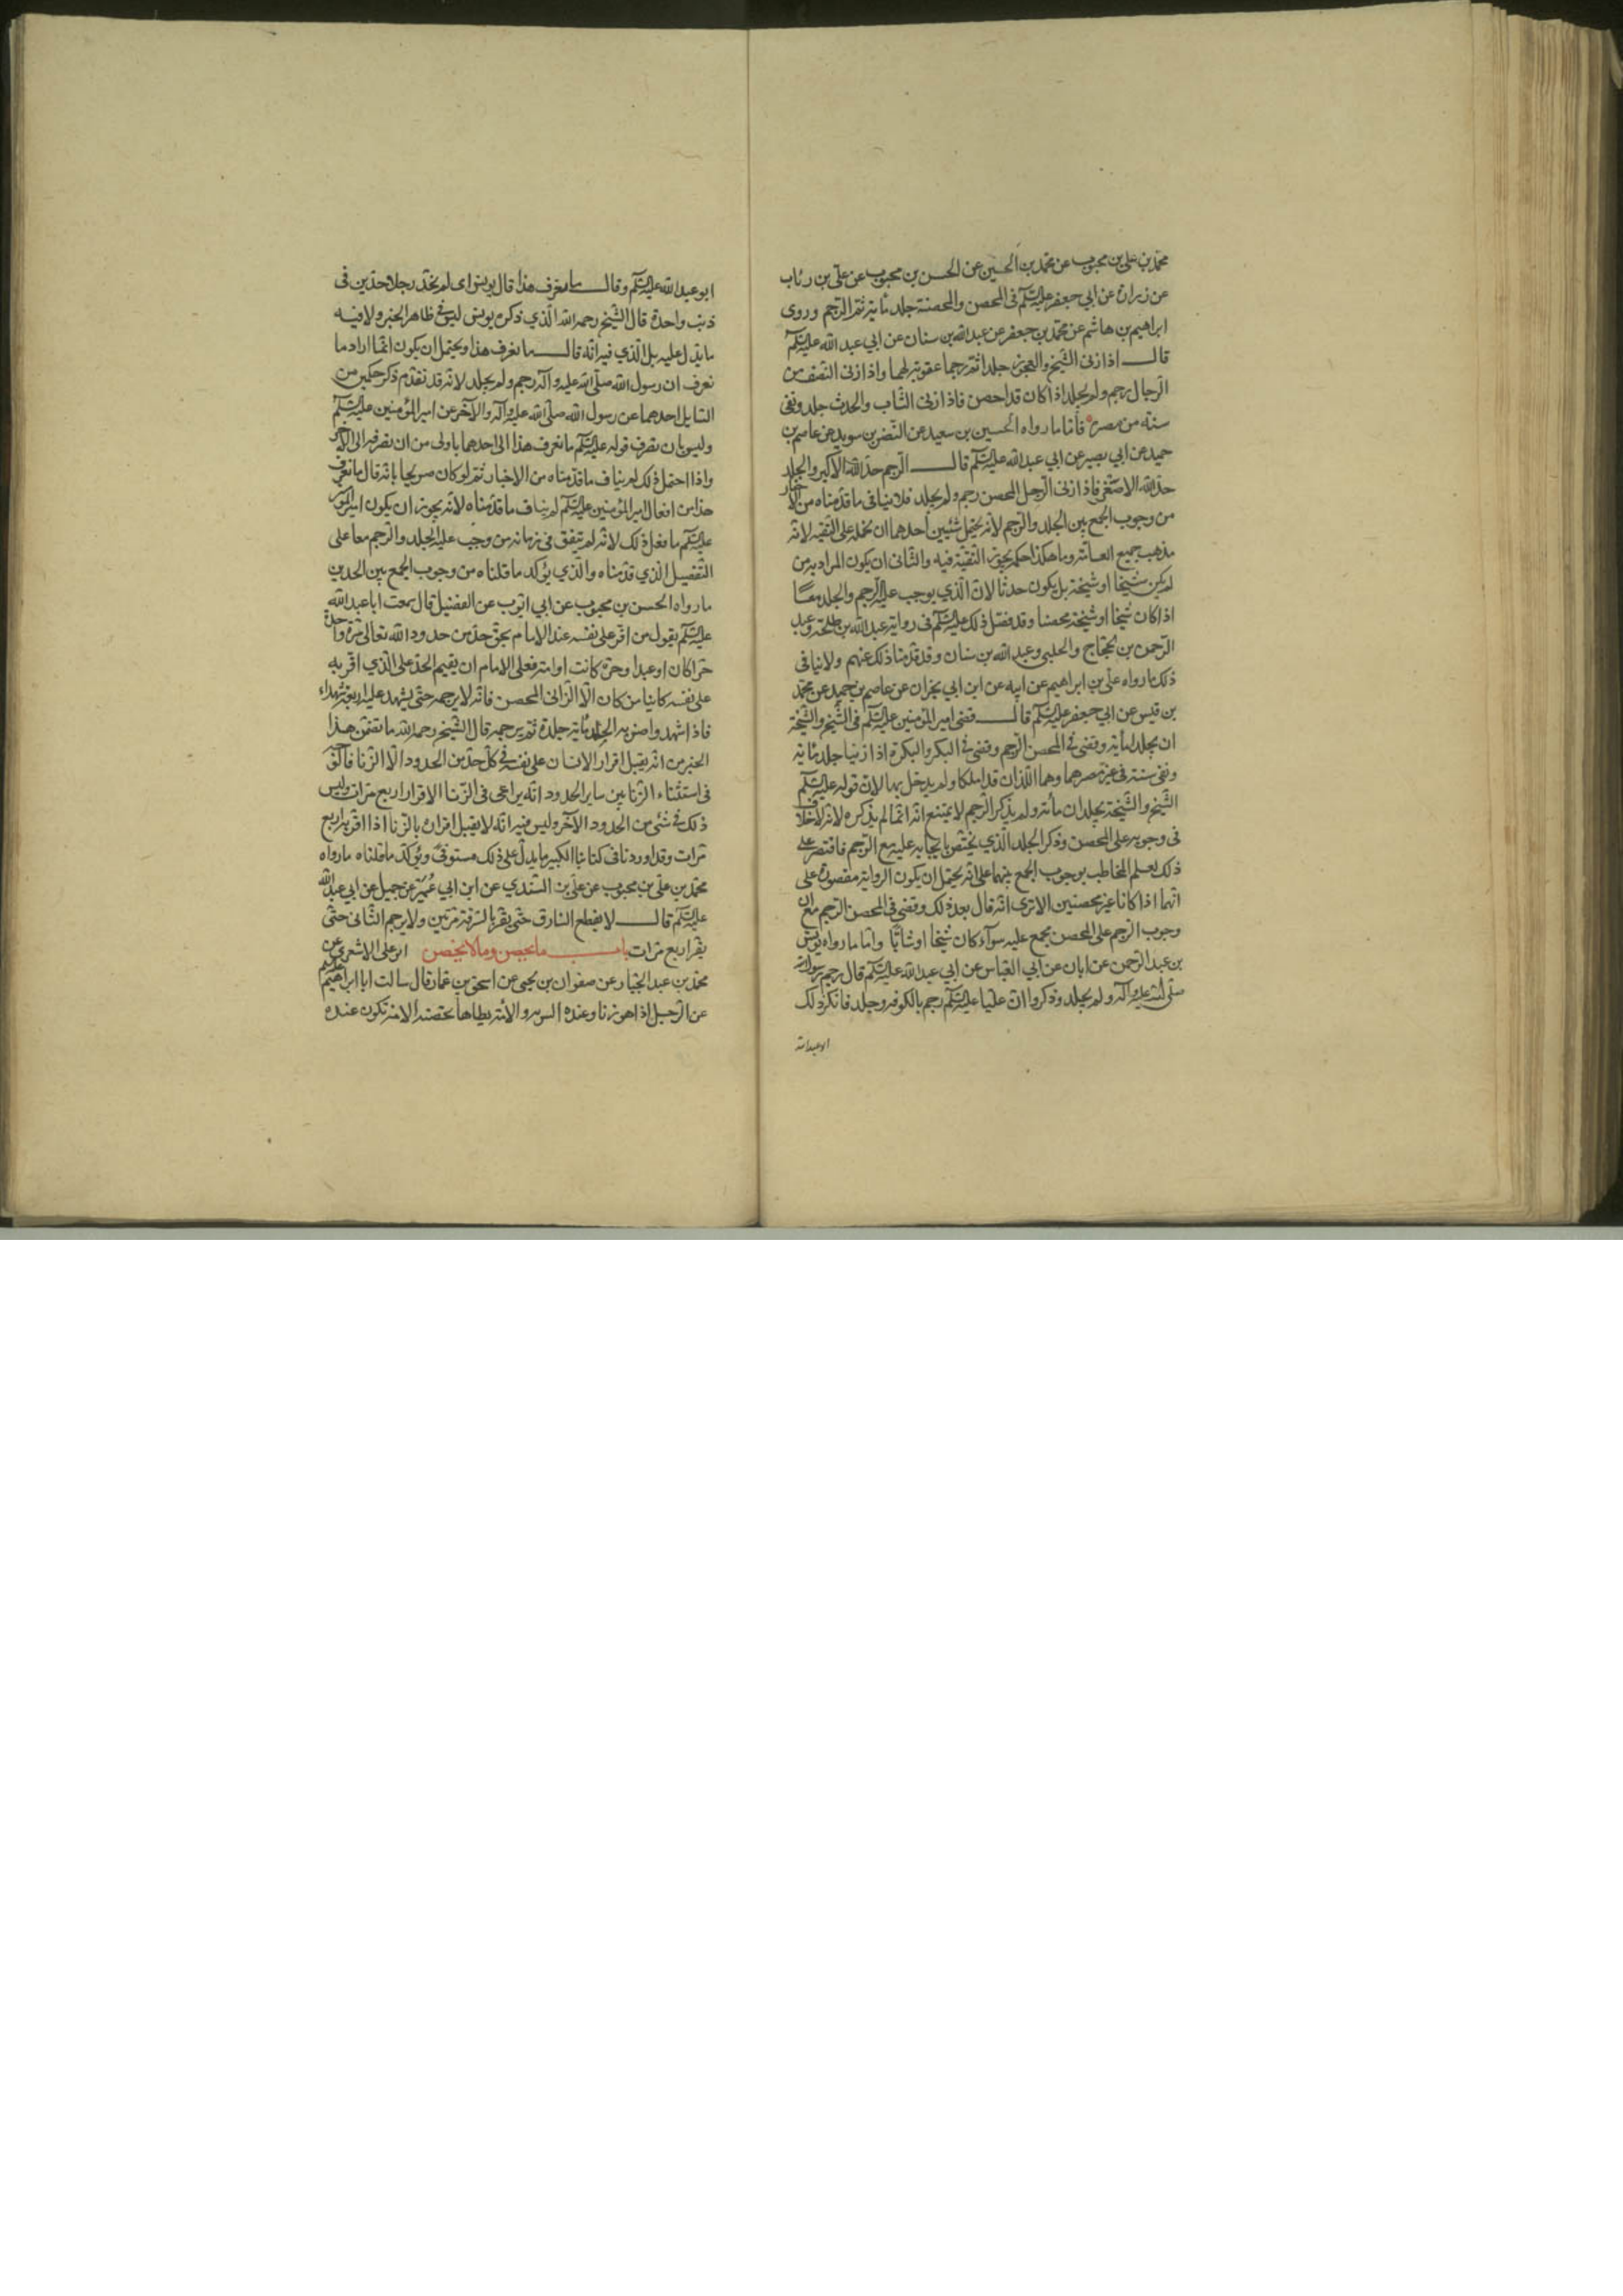 محمد بن علي بن محبوب عن محمد بن الحسين عن الحسن بن محبوب عن علي بن رئاب
عن زرارة عن ابي جعفر عليه السلم في المحصن والمحصنة جلد مائة ثم الرجم وروى
ابراهيم بن هاشم عن محمد بن جعفر عن عبد الله بن سنان عن ابي عبد الله عليه السلم
قال اذا زنى الشيخ والعجوز جلدا ثم رجما عقوبة لهما واذا زنى النصف من
الرجال رجم ولم يجلد اذا كان قد احصن فاذا زنى الشاب والحدث جلد ونفي
سنة من مصره فاما ما رواه الحسين بن سعيد عن النضر بن سويد عن عاصم بن
حميد عن ابي بصير عن ابي عبد الله عليه السلم قال الرجم حد الله الاكبر والجلد
حد الله الاصغر فاذا زنى الرجل المحصن رجم ولم يجلد فلا ينافي ما قدمناه من الاخبار
من وجوب الجمع بين الجلد والرجم لانه يحتمل شيئين احدهما ان نحمله على التقية لانه
مذهب جميع العامة وما هكذا حكمه يجوز التقية فيه والثاني ان يكون المراد به من
لم يكن شيخا او شيخة بل يكون حدثا لان الذي يوجب عليه الرجم والجلد معا
اذا كان شيخا او شيخة محصنا وقد فصل ذلك عليه السلم في رواية عبد الله بن طلحة وعبد
الرحمن بن الحجاج والحلبي وعبد الله بن سنان وقد قدمنا ذلك عنهم ولا ينافي
ذلك ما رواه علي بن ابراهيم عن ابيه عن ابن ابي نجران عن عاصم بن حميد عن محمد
بن قيس عن ابي جعفر عليه السلم قال قضى امير المؤمنين عليه السلم في الشيخ والشيخة
ان يجلدا مأية وقضى في المحصن الرجم وقضى في البكر والبكرة اذا زنيا جلد مائة
ونفي سنة في غير مصرهما وهما اللذان قد املكا ولم يدخل بها لان قوله عليه السلم
الشيخ والشيخة يجلدان مأته ولم يذكر الرجم لا يمتنع انه انما لم يذكره لانه لا خلاف
في وجوبه على المحصن وذكر الجلد الذي يختص بايجابه عليه مع الرجم فاقتصر على
ذلك لعلم المخاطب بوجوب الجمع بينهما على انه يحتمل ان يكون الرواية مقصورة على
انهما اذا كانا غير محصنين الا ترى انه قال بعد ذلك وقضى في المحصن الرجم مع ان
وجوب الرجم على المحصن يجمع عليه سوآء كان شيخا او شابا واما ما رواه يونس
بن عبد الرحمن عن ابان عن ابي العباس عن ابي عبد الله عليه السلم قال رجم رسول الله
صلى الله عليه وآله ولم يجلد وذكروا ان عليا عليه السلم رجم بالكوفه وجلد فانكر ذلك
ابو عبد الله
ابو عبد الله عليه السلم وقال ما نعرف هذا قال يونس اى لم يحد رجلا حدين في
ذنب واحدة قال الشيخ رحمه الله الذي ذكره يونس ليس في ظاهر الخبر ولا فيه
ما يدل عليه بل الذي فيه انه قال ما نعرف هذا ويحتمل ان يكون انما اراد ما
نعرف ان رسول الله صلى الله عليه وآله رجم ولم يجلد لانه قد تقدم ذكر حكمين من
السايل احدهما عن رسول الله صلى الله عليه وآله والآخر عن امير المؤمنين عليه السلم
وليس بان تصرف قوله عليه السلم ما نعرف هذا الى احدهما باولى من ان نصرفه الى الآخر
واذا احتمل ذلك لم يناف ما قدمناه من الاخبار ثم لو كان صريحا بانه قال ما نعرف
هذا من افعال امير المؤمنين عليه السلم لم يناف ما قدمناه لانه يجوز ان يكون امير المؤمنين
عليه السلم ما فعل ذلك لانه لم تتفق في زمانه من وجب عليه الجلد والرجم معا على
التفصيل الذي قدمناه والذي يؤكد ما قلناه من وجوب الجمع بين الحدين
ما رواه الحسن بن محبوب عن ابي ايوب عن الفضيل قال سمعت ابا عبد الله
عليه السلم يقول من اقر على نفسه عند الامام بحق حد من حدود الله تعالى مرة واحدة
حرا كان او عبدا وحرة كانت او امة فعلى الامام ان يقيم الحد على الذي اقر به
على نفسه كاينا من كان الا الزاني المحصن فانه لا يرجمه حتى يشهد عليه اربعة شهداء
فاذا شهدوا ضربه الجلد مائة جلدة ثم يرجمه قال الشيخ رحمه الله ما تضمن هذا
الخبر من انه يقبل اقرار الانسان على نفسه في كل حد من الحدود الا الزنا فالوجه
في استثناء الزنا من ساير الحدود انه يراعى في الزنا الاقرار اربع مرات وليس
ذلك في شئ من الحدود الآخر وليس فيه انه لا يقبل اقراره بالزنا اذا اقر به اربع
مرات وقد اوردنا في كتابنا الكبير ما يدل على ذلك مستوفى ويؤكد ما قلناه ما رواه
محمد بن علي بن محبوب عن علي بن السندي عن ابن ابي عمير عن جميل عن ابي عبد الله
عليه السلم قال لا يقطع السارق حتى يقر بالسرقة مرتين ولا يرجم الثاني حتى
يقر اربع مرات باب ما يحصن وما لا يحصن ابو على الاشعرى عن
محمد بن عبد الجبار عن صفوان بن يحيى عن اسحق بن عمار قال سالت ابا ابراهيم عليه السلم
عن الرجل اذا هو زنا وعنده السريه والامة يطاها تحصنه الامة تكون عنده